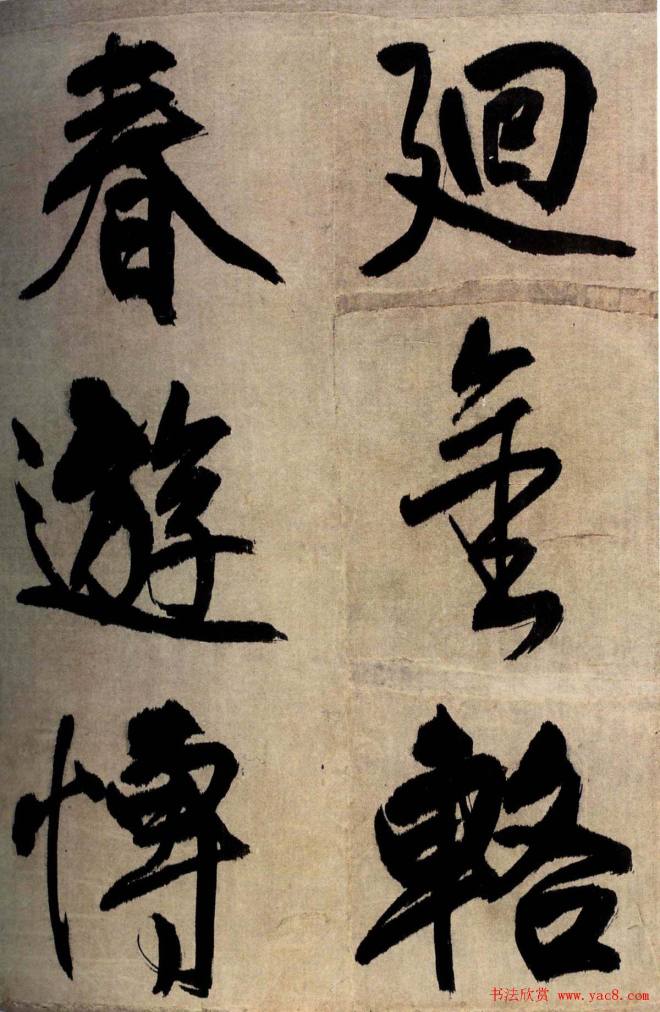 廻金輅
春遊博
书法欣赏 www.yac8.com